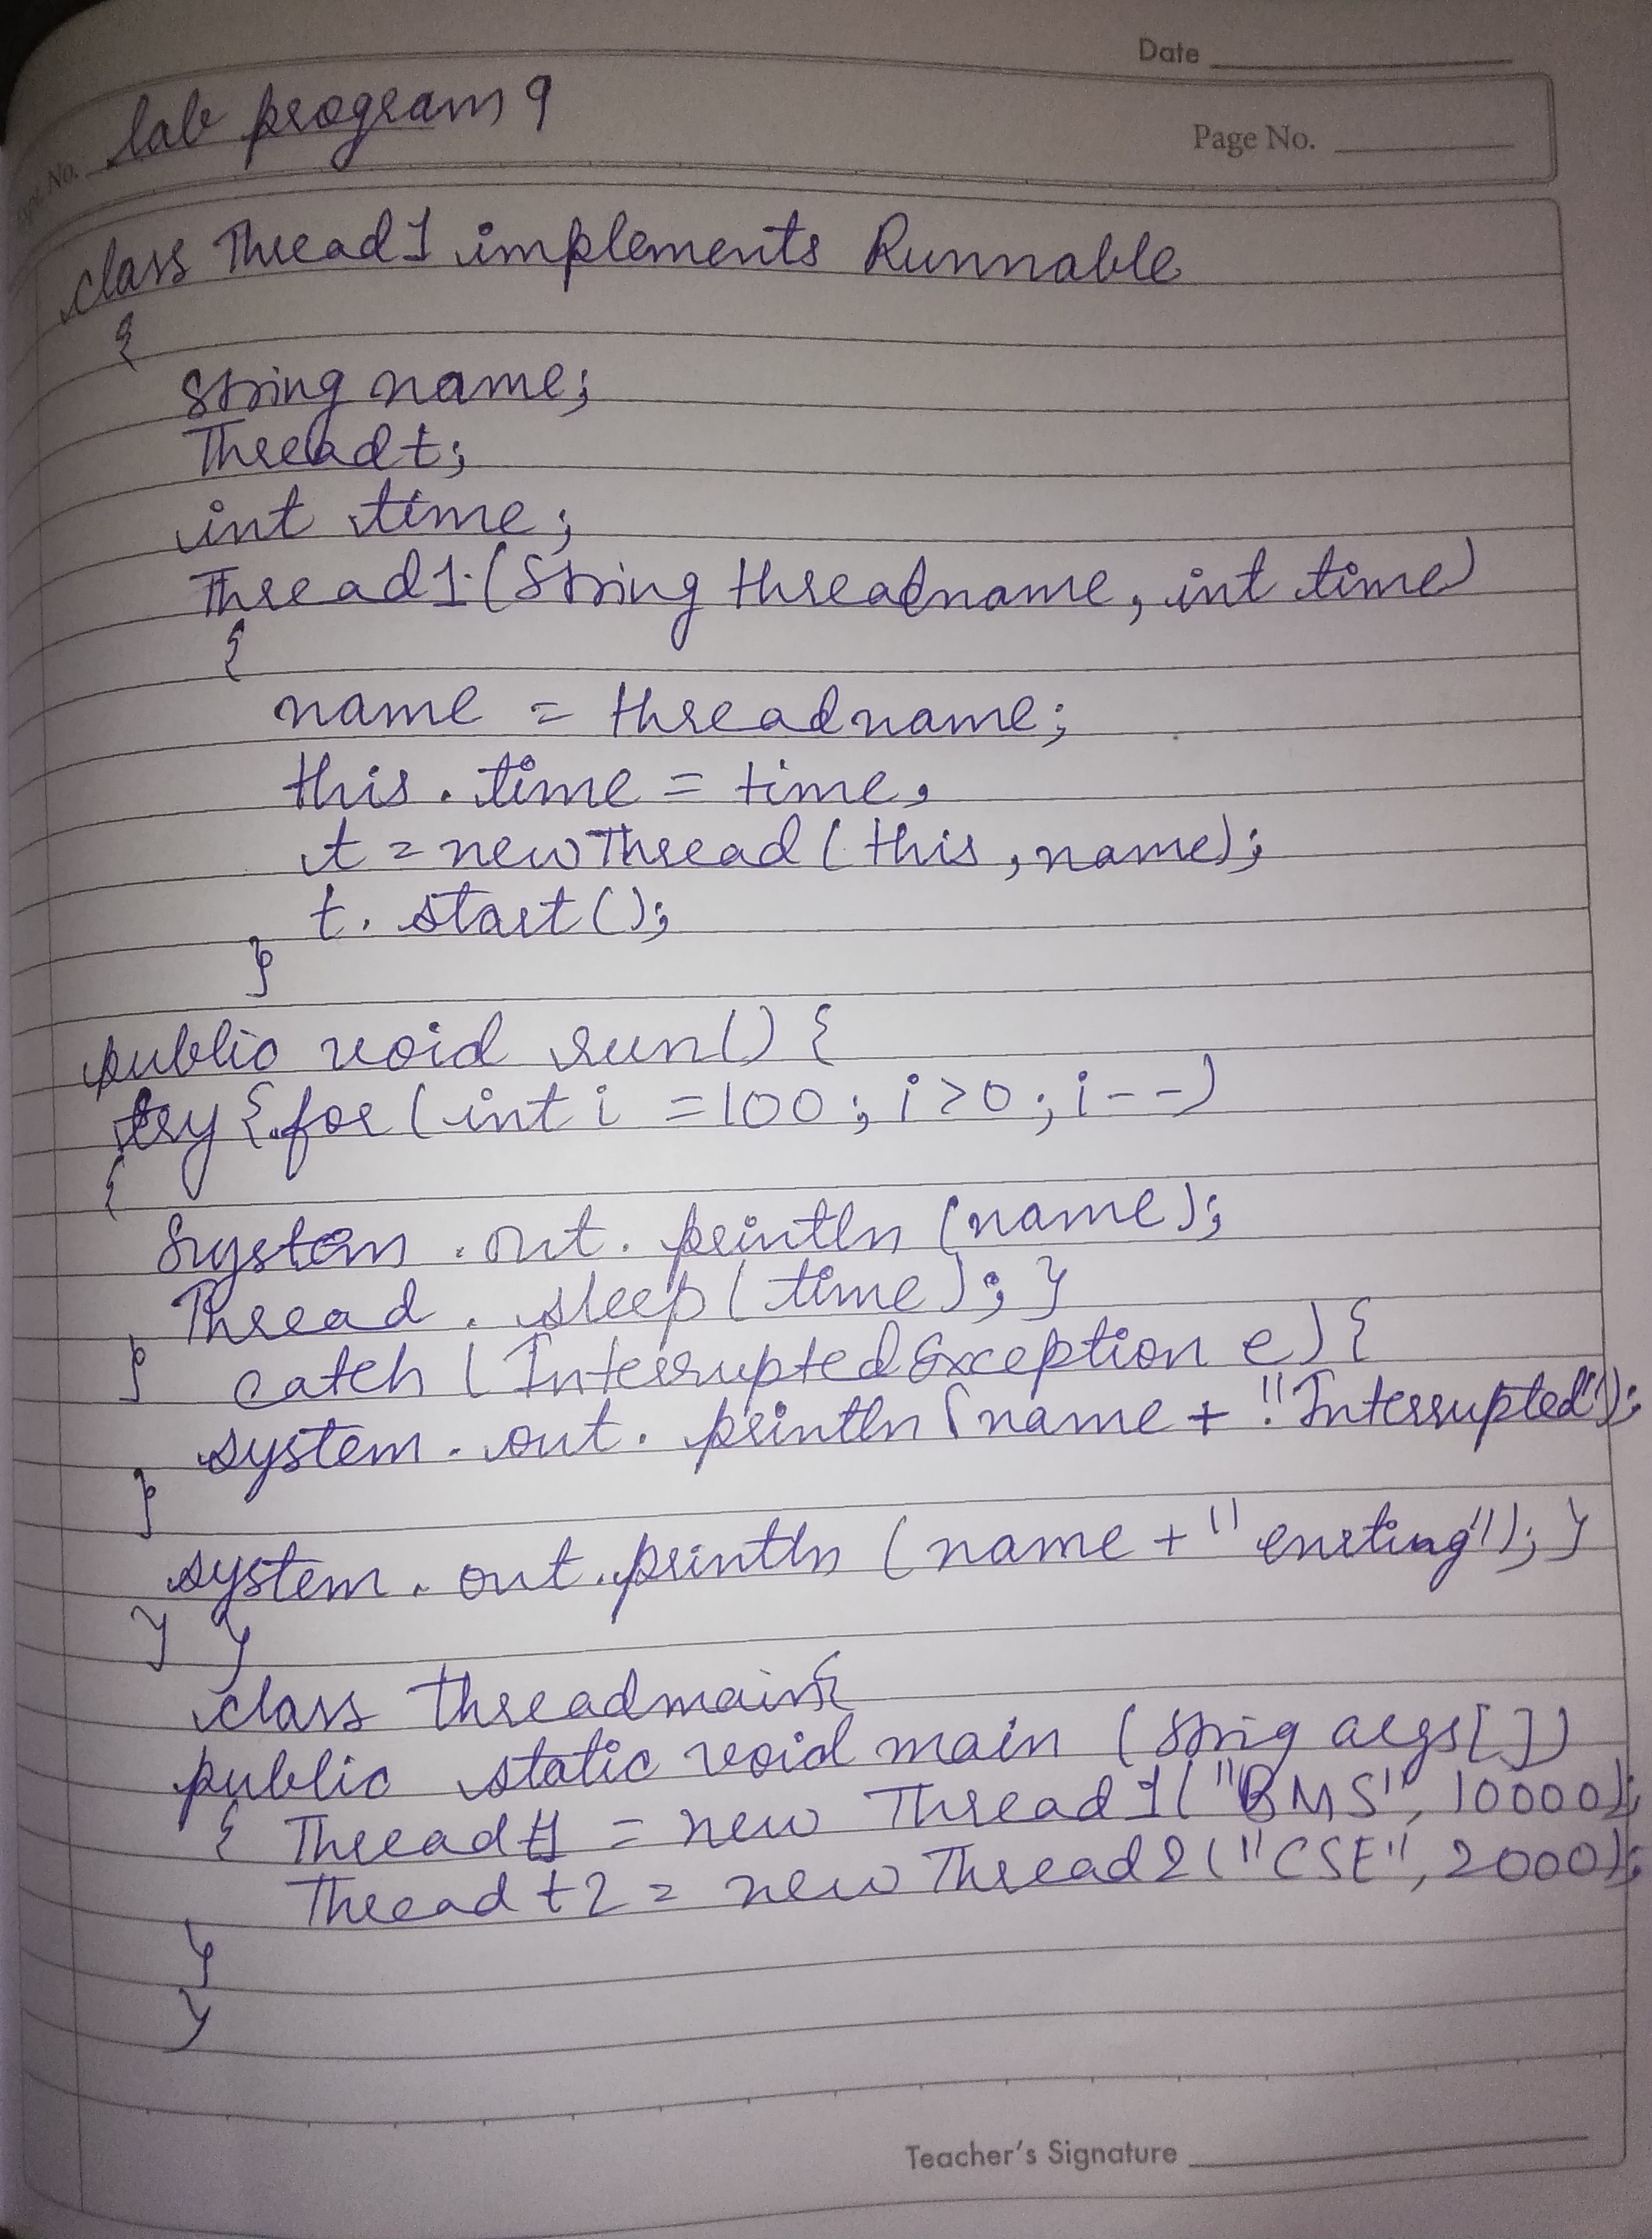 Date
Expt. No. lab program 9
Page No.
class Thread1 implements Runnable
{
String name;
Thread t;
int time;
Thread1(String threadname, int time)
{
name = threadname;
this.time = time,
t = new Thread (this, name);
t. start();
}
public void run() {
try {for (int i = 100; i>0; i--)
{
System.out.println (name);
Thread. sleep(time); }
} catch (InterruptedException e) {
system.out.println (name + "Interrupted");
}
system.out.println (name + "enxting"); }
} }
class threadmain{
public static void main (Strig args[])
{ Thread t1 = new Thread1("BMS", 10000);
Thread t2 = new Thread2("CSE", 2000);
}
}
Teacher's Signature